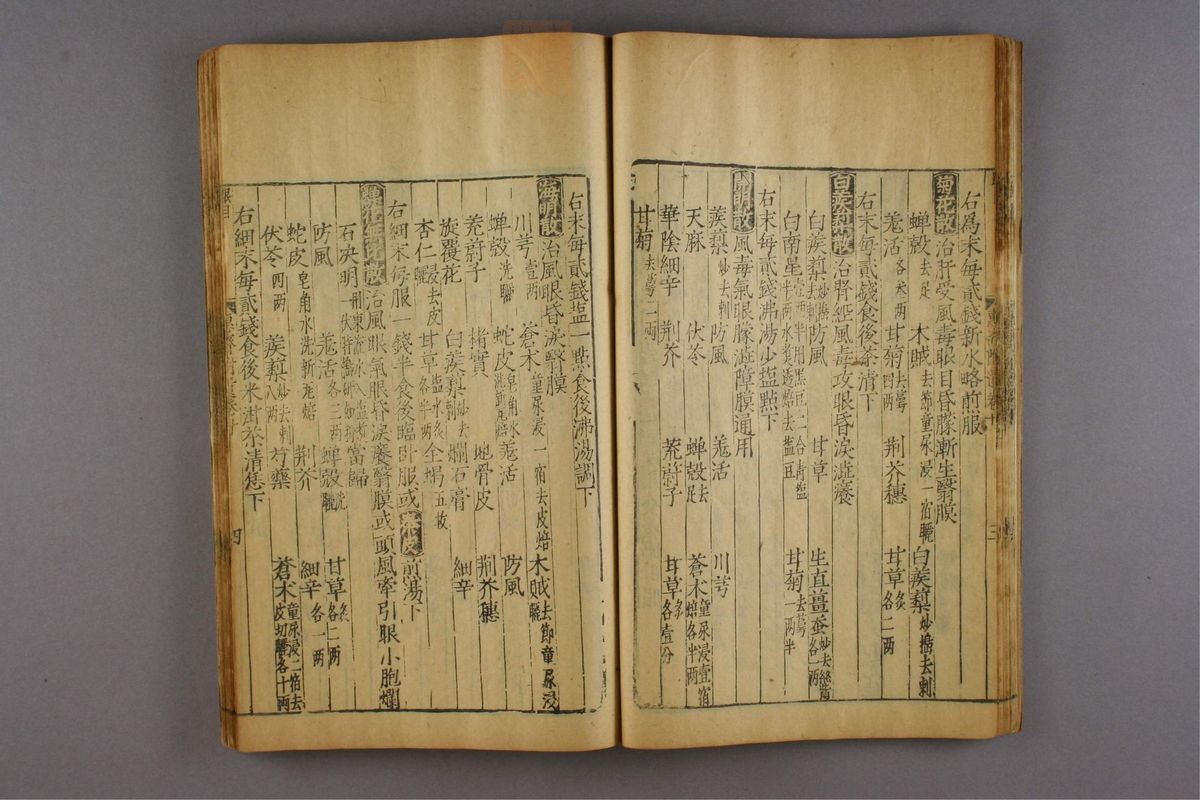 右為末每貳錢新水略煎服
菊花散 治肝受風毒眼目昏朦漸生翳膜
蟬殼去足 木賊去節童尿浸一宿曬 白蒺藜炒搗去刺
羗活各叁两 甘菊去蕚四两 荆芥穗 甘草炙各二两
右末每貳錢食後茶清下
白蒺藜散 治腎經風毒攻眼昏淚澁癢
白蒺藜炒搗去刺 防風 甘草 生直薑蚕炒去絲各一两
白南星 甘菊去蕚一两半
右末每貳錢沸湯小塩點下
開明散 風毒氣眼朦澁障膜通用
蒺藜炒去刺 防風 羗活 川芎
天麻 伏苓 蟬殼去足 蒼术童尿浸壹宿焙各半两
華陰細辛 荆芥 茺蔚子 甘草炙各壹分
甘菊去蕚一两
三
右末每貳錢塩一點食後沸湯調下
海明散 治風眼昏淚翳膜
川芎壹两 蒼术童尿浸一宿去皮焙 木賊去節童尿浸曬
蟬殼洗曬 蛇皮皂角水洗新瓦焙 羗活 防風
茺蔚子 楮實 地骨皮 荆芥穗
旋覆花 白蒺藜炒去刺 爛石膏 細辛
杏仁浸去皮曬 甘草塩水炙各半两 全蝎五枚
右細末每服一錢半食後臨卧服或桑白皮煎湯下
蟬花無比散 治風眼氣眼昏淚癢翳膜或頭風牽引眼小胞爛
石决明 當歸
防風 羗活各三两 蟬殼洗曬 甘草炙各二两
蛇皮皂角水洗新瓦焙 荆芥 細辛各一两
伏苓四两 蒺藜炒去刺八两 芍藥 蒼术童尿浸二宿去皮切曬各十两
右細末每貳錢食後米泔茶清恁下
眼目
四